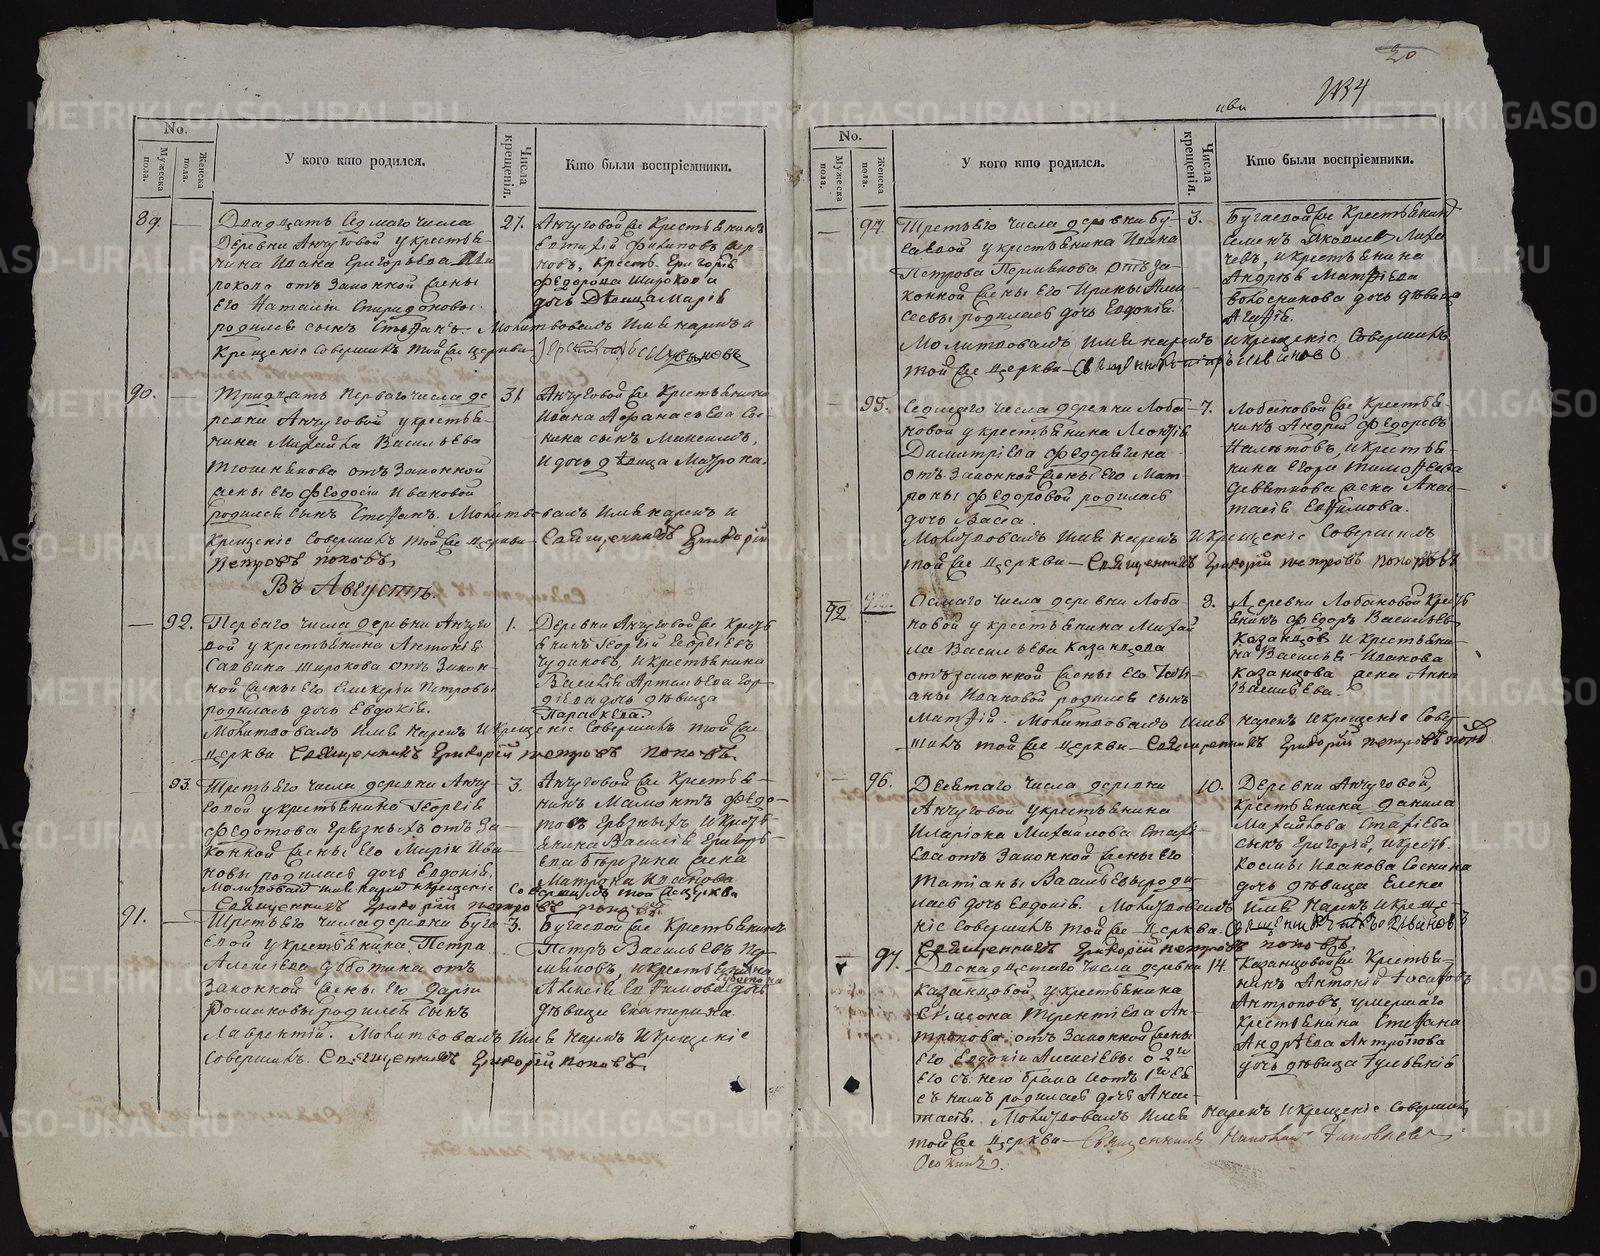 20
1134
No.
Мужеска пола.
Женска пола.
У кого кто родился.
Числа крещенія.
Кто были воспріемники.
89.
Двадцать седмаго числа
деревни Анчуговой у крестья-
нина Ивана Григорьева Ши
рокова отъ законной жены
его Наталіи Спиридоновы
родился сынъ Стефанъ. Молитвовалъ имя нарекъ и
крещеніе совершилъ той же церкви
27.
Анчуговой же крестьянинъ
Евтихій Филиповъ
новъ, крест. Григорія
Федорова Широкова
дочь девица Марія
90.
Тридцать перваго числа де
ревни Анчуговой у крестья-
нина Михайла Васильева
отъ законной
жены его Феодосіи Ивановой
родился сынъ Стефанъ. Молитвовалъ имя нарекъ и
крещеніе совершилъ той же церкви Священникъ Григорій
Петровъ Поповъ.
31
Анчуговой же крестьянина
Ивана Афанасьева
нина сынъ Максимъ,
и дочь девица Матрона.
Въ Августѣ.
92.
Перваго числа деревни Анчуго
вой у крестьянина Антонія
Саввина Широкова отъ закон-
ной жены его Гликеріи Петровы
родилась дочь Евдокія.
Молитвовалъ имя нарекъ и крещеніе совершилъ той же
церкви Священникъ Григорій Петровъ Поповъ.
1.
Деревни Анчуговой же крестья
янинъ Георгій Георгіевъ
Чудиновъ, и крестьянина
Василія Артемьева Гор
діева дочь девица
Параскева.
93.
Третьяго числа деревни Анчу-
говой у крестьянина Георгія
Федотова Грязныхъ отъ за-
конной жены его Маріи Ива
новы родилась дочь Евдокія.
Молитвовалъ имя нарекъ и крещеніе совершилъ той же церкви
Священникъ Григорій Петровъ Поповъ.
3.
Анчуговой же крестья-
нинъ Мамонтъ Федо-
товъ Грязныхъ и кресть-
янина Василія Григорь-
ева Березина жена
Матрона Иванова
91.
Третьяго числа деревни Буга
евой у крестьянина Петра
Алексіева Субботина отъ
законной жены его Даріи
Романовы родился сынъ
Лаврентій. Молитвовалъ имя нарекъ и крещеніе
совершилъ. Священникъ Григорій Поповъ.
3.
Бугаевой же крестьянинъ
Петръ Васильевъ Пер-
мяковъ, и крестьянина
Алексія Евфимова дочь
девица Екатерина
No.
Мужеска пола.
Женска пола.
У кого кто родился.
Числа крещенія.
Кто были воспріемники.
94.
Третьяго числа деревни Бу-
гаевой у крестьянина Ивана
Петрова Пермякова отъ за-
конной жены его Ирины Али
сеевы родилась дочь Евдокія.
Молитвовалъ имя нарекъ и крещеніе совершилъ
той же церкви Священникъ
3.
Бугаевой же крестьянинъ
Семенъ Яковлевъ Лиха
чевъ, и крестьянина
Андрея Матфіева
Колосникова дочь девица
Агафія.
95.
Седмаго числа деревни Лоба-
новой у крестьянина Леонтія
Димитріева Федерягина
отъ законной жены его Мат
роны Федоровой родилась
дочь Васса.
Молитвовалъ имя нарекъ и крещеніе совершилъ
той же церкви Священникъ Григорій Петровъ Поповъ
7.
Лобановой же крестья-
нинъ Андрей Федоровъ
и крестья-
нина Егора Тимофеева
Девяткова жена Анас-
тасія Евфимова.
92
Осмаго числа деревни Лоба
новой у крестьянина Михай
ла Васильева Казанцева
отъ законной жены его Тати
аны Ивановой родился сынъ
Матфій. Молитвовалъ имя нарекъ и крещеніе совер-
шилъ той же церкви Священникъ Григорій Петровъ Поповъ
8.
Деревни Лобановой крест
янинъ Федоръ Васильевъ
Казанцовъ и крестьяни-
на Василья Иванова
Казанцова жена Анна
Васильева.
96.
Девятаго числа деревни
Анчуговой у крестьянина
Иларіона Михаилова Стахі-
ева отъ законной жены его
Татіаны Васильевы роди
лась дочь Евдокія. Молитвовалъ имя нарекъ и креще-
ніе совершилъ той же церкви.
Священникъ Григорій Петровъ Поповъ.
10.
Деревни Анчуговой,
крестьянина Данила
Михайлова Стахіева
сынъ Григорій, и крест.
Космы Иванова Соснина
дочь девица Елена
97.
числа деревни
Казанцовой, у крестьянина
Симеона Терентіева Ан-
тропова отъ законной жены
его Евдокіи Алексіевы о 2м
его съ нею брака и отъ 1го ея
съ нимъ родилась дочь Анас-
тасія. Молитвовалъ имя нарекъ и крещеніе совершилъ
той же церкви Священникъ Николай
14.
Казанцовой же крестья-
нинъ Антоній Іосифовъ
Антроповъ, и умершаго
крестьянина Стефана
Андрѣева Антропова
дочь девица Гульянія